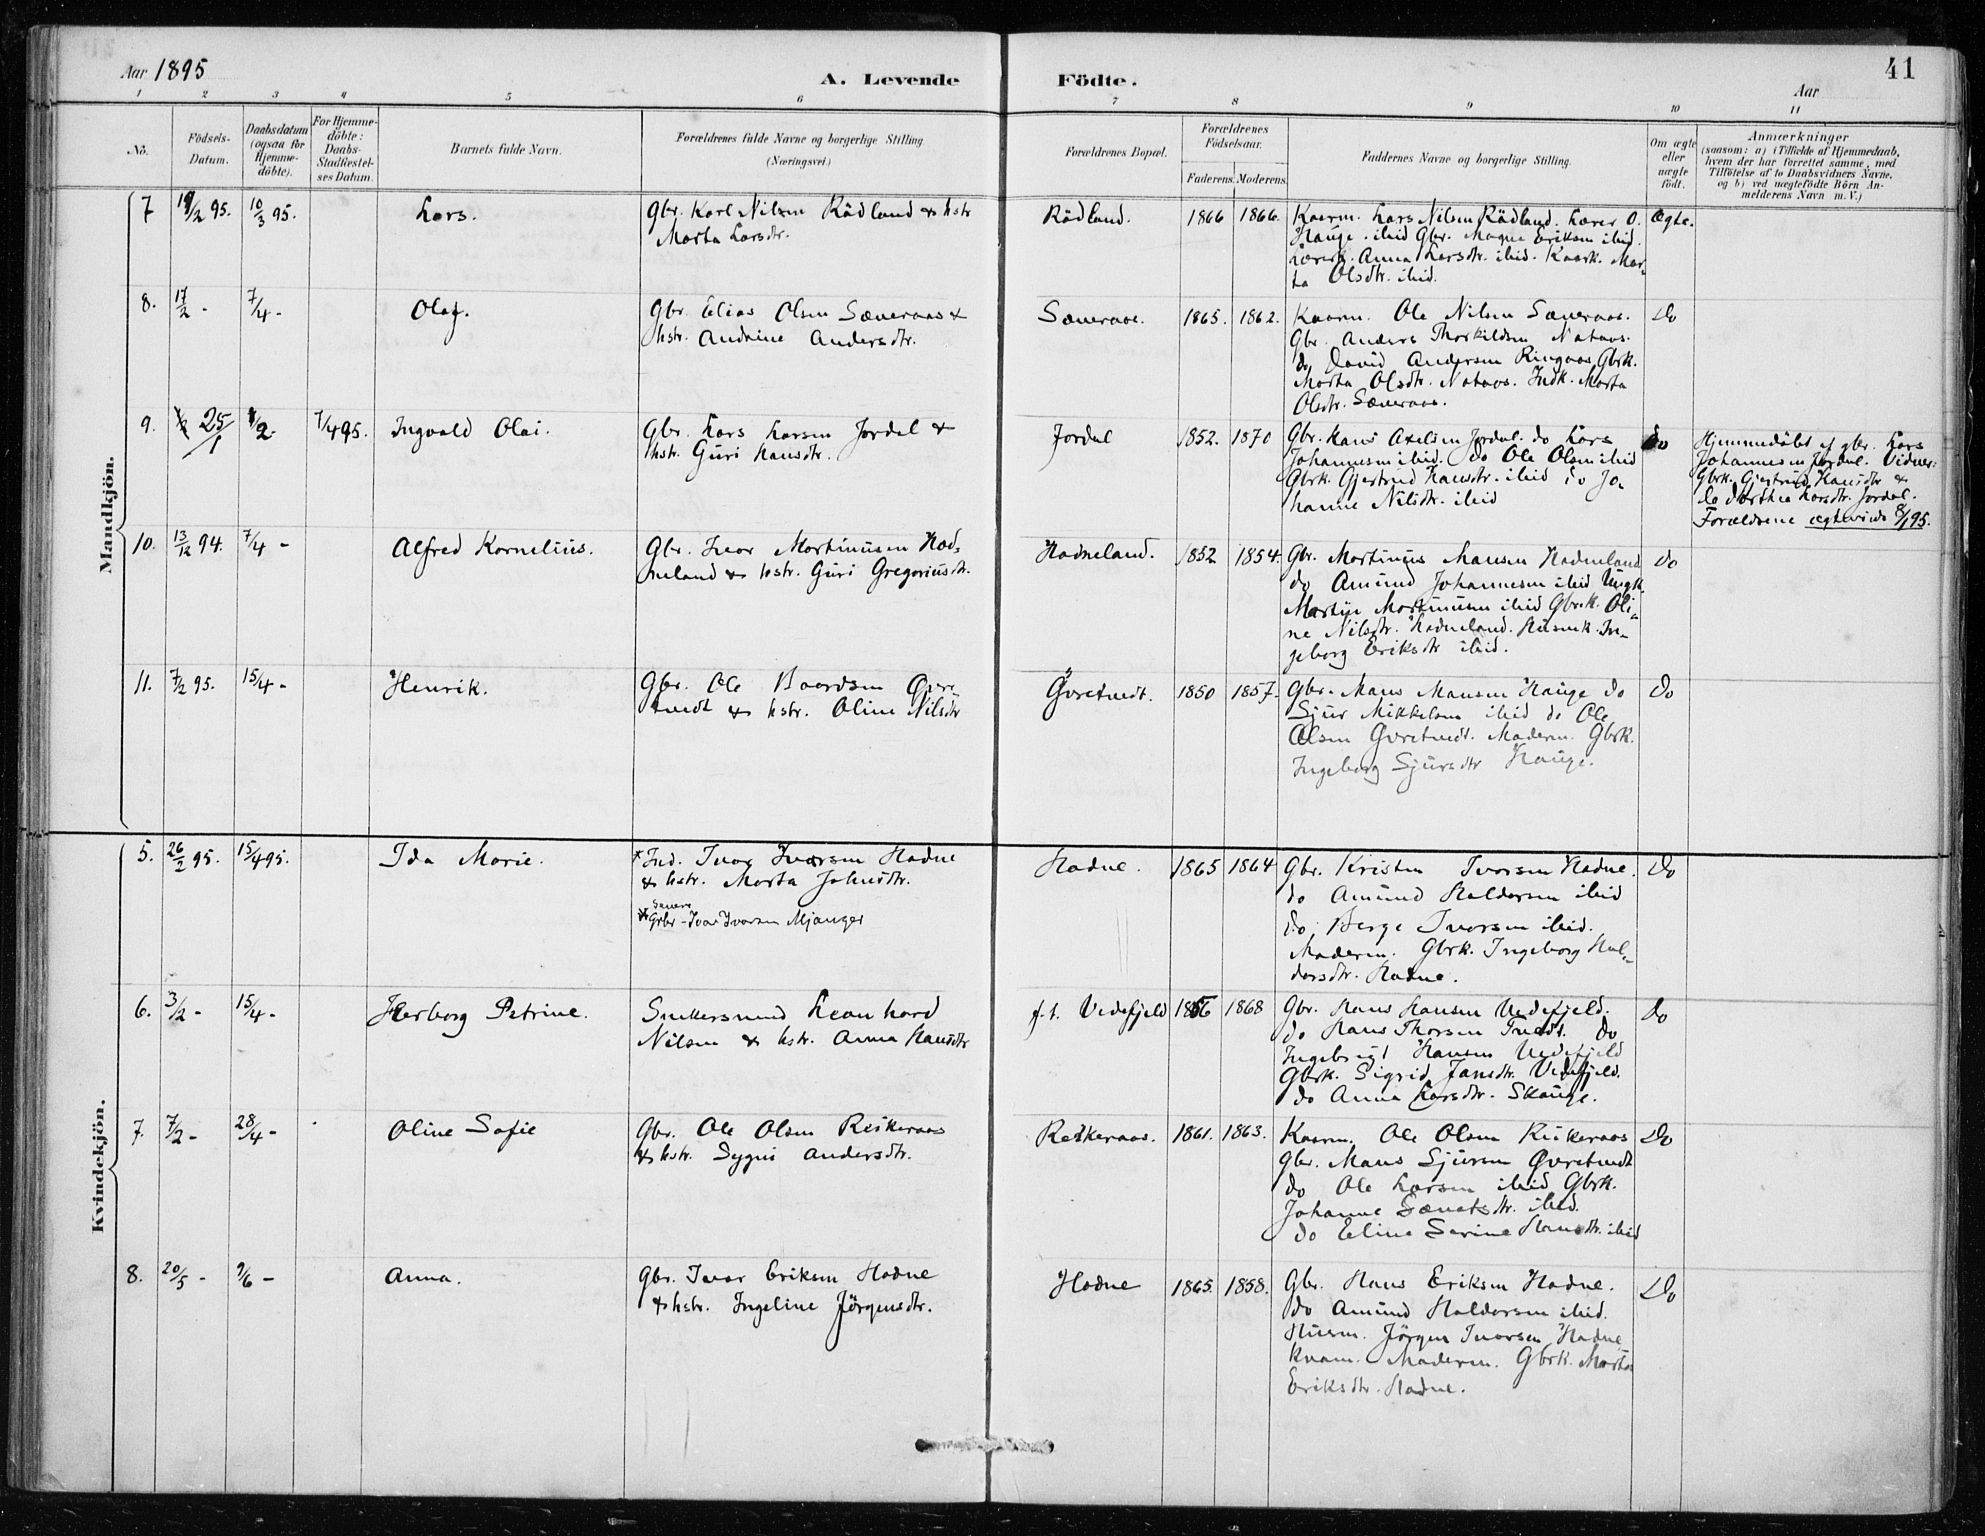 Aar 1895
A. Levende
Födte.
Aar
41
1 2 3 4 5 6 7 8 9 10 11
No.
Födsels-
Datum.
Daabsdatum
(ogsaa for
Hjemme-
döbte).
For Hjemme-
döbte:
Daabs-
Stadfæstel-
ses Datum.
Barnets fulde Navn.
Forældrenes fulde Navne og borgerlige Stilling
(Næringsvei.)
Forældrenes Bopæl.
Forældrenes
Födselsaar.
Faderens. Moderens.
Faddernes Navne og borgerlige Stilling.
Om ægte
eller
uægte
födt.
Anmærkninger
(saasom: a) i Tilfælde af Hjemmedaab,
hvem der har forrettet samme, med
Tilföielse af to Daabsvidners Navne,
og b) ved uægtefödte Börn An-
melderens Navn m. V.)
Mandkjön.
7 19/2 95. 10/3 95. Lars.
Gbr. Karl Nilsen Rödland & hstr
Marta Larsdtr.
Rödland. 1866 1866.
Kaarm. Lars Nilsen Rödland. Lærer O.
Hauge. ibid Gbr. Magne Eriksen ibid.
Anna Larsdtr. ibid. Kaark. Mar-
ta Olsdtr. ibid.
Ægte.
8. 17/2 - 7/4 - Olaf.
Gbr. Elias Olsen Sæveraas &
hstr. Andrine Andersdtr.
Sæveraas. 1865. 1862.
Kaarm. Ole Nilsen Sæveraas.
Gbr. Anders Thorkildsen Nataas.
do David Andersen Ringaas Gbrk.
Marta Olsdtr. Nataas. Indk. Marta
Olsdtr. Sæveraas.
Do
9. 25/1 1/2 - 7/4 95. Ingvald Olai.
Gbr. Lars Larsen Jordal &
hstr. Guri Hansdtr.
Jordal 1852. 1870
Gbr. Hans Axelsen Jordal. do Lars
Johannesen ibid. do Ole Olsen ibid
Gbrk. Gjertrud Hansdtr. ibid do Jo-
hanne Nilsdtr. ibid
Do
Hjemmedöbt af gbr. Lars
Johannesen Jordal. Vidner:
Gbrk. Gjertrud Hansdtr &
do Dorthea Larsdtr. Jordal.
Forældrene ægteviede 8/1 95.
10. 13/12 94. 7/4 - Alfred Kornelius.
Gbr. Ivar Martinusen Had-
neland & hstr. Guri Gregoriusdtr.
Hadneland. 1852 1854.
Gbr. Martinus Hansen Hadneland
do Amund Johannesen ibid Ungk.
Martin Martinusen ibid Gbrk. Oli-
ne Nilsdtr. Hadneland. Husmk. In-
geborg Eriksdtr ibid.
Do
11. 7/2 95. 15/4 - Henrik.
Gbr. Ole Baardsen Øvre-
tvedt & hstr. Oline Nilsdtr
Øvretvedt. 1850 1857.
Gbr. Mans Mansen Hauge do
Sjur Mikkelsen ibid do Ole
Olsen Øvretvedt. Maderm. Gbrk.
Ingeborg Sjursdtr Hauge.
Do
Kvindekjön.
5. 26/2 95. 15/4 95. Ida Marie.
* Ind. Ivar Ivarsen Hadne
& hstr. Marta Johnsdtr.
Senere
* Grbr - Ivar Ivarsen Mjanger
Hadne. 1865 1864
Gbr. Kristen Ivarsen Hadne.
do Amund Haldorsen ibid
do. Berge Ivarsen ibid.
Maderm. Gbrk. Ingeborg Hal-
dorsdtr. Hadne.
Do
6. 3/2 - 15/4 - Herborg Petrine.
Snekkersvend Leonhard
Nilsen & hstr. Anna Hansdtr
f. t. Vedefjeld 1866 1868
Gbr. Hans Hansen Vedefjeld.
do Hans Thorsen Tvedt. do
Ingebrigt Hansen Vedefjeld
Gbrk. Sigrid Jansdtr. Vedefjeld.
do Anna Larsdtr. Skauge.
Do
7. 7/2 - 28/4 - Oline Sofie
Gbr. Ole Olsen Reikeraas
& hstr. Sygni Andersdtr.
Reikeraas. 1861. 1863.
Kaarm. Ole Olsen Reikeraas
Gbr. Mans Sjursen Øvretvedt
do Ole Larsen ibid Gbrk.
Johanne ibid.
do Eline Serine Hansdtr. ibid
Do
8. 20/5 - 9/6 - Anna.
Gbr. Ivar Eriksen Hadne
& hstr. Ingeline Jörgensdtr.
Hodne 1865. 1858.
Gbr. Hans Eriksen Hadne.
do Amund Haldorsen ibid.
Husm. Jörgen Ivarsen Hadne
kvam. Maderm. Gbrk. Marta
Eriksdtr. Hadne.
Do